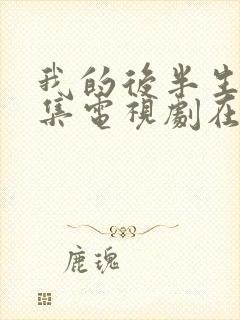 我的後半生
集電視劇在
鹿瑰